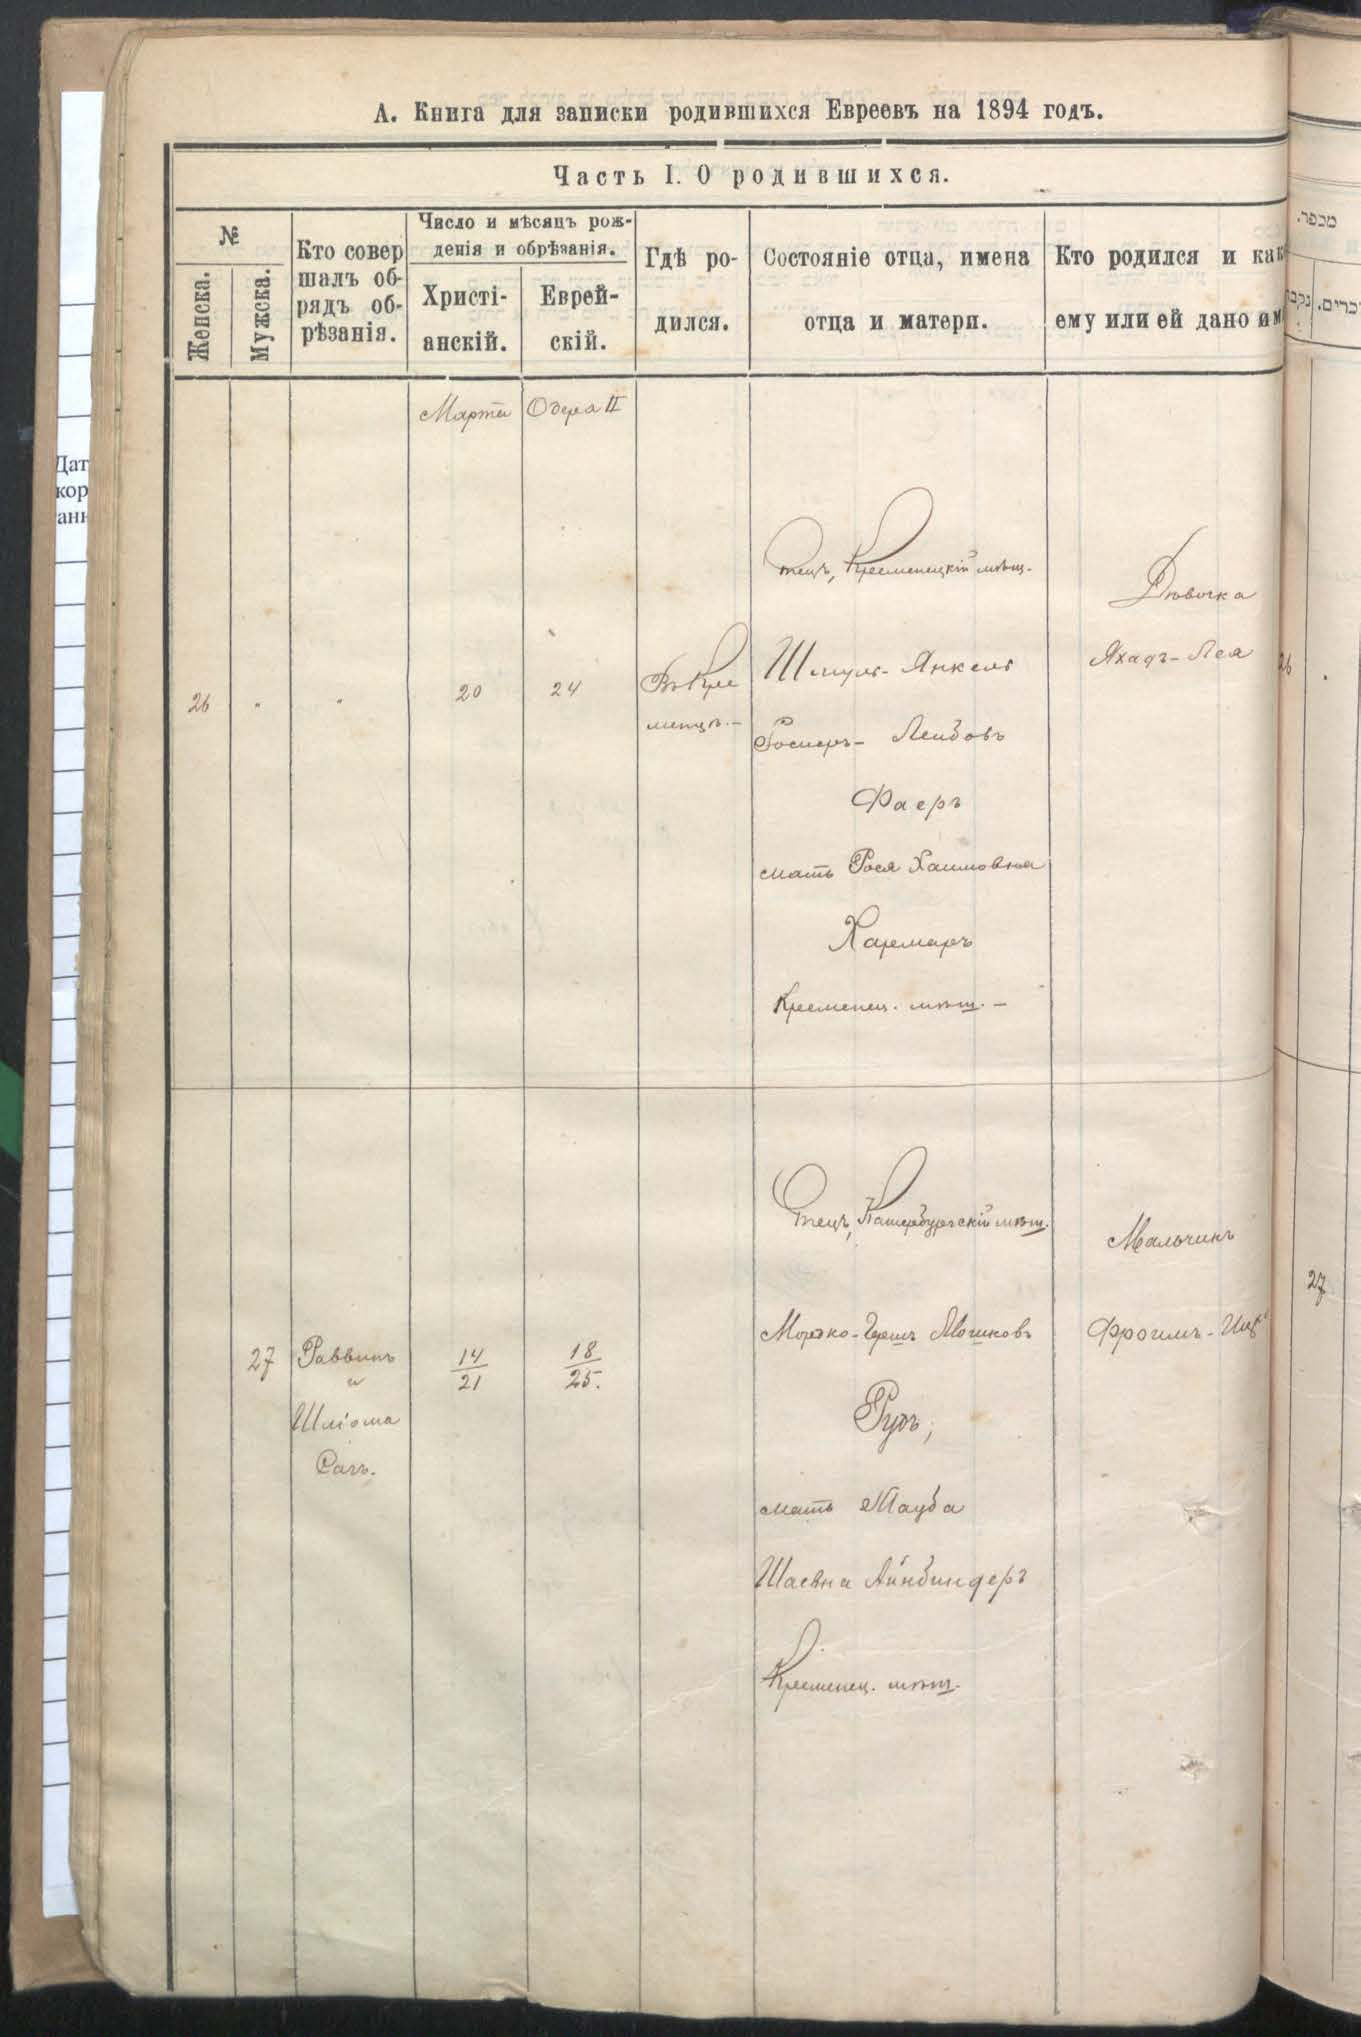 А. Книга для записки родившихся Евреевъ на 1894 годъ.
Часть I. О родившихся.
№
Женска.
Мужска.
Кто совер
шалъ об-
рядъ об-
рѣзанія.
Число и мѣсяцъ рож-
денія и обрѣзанія.
Христі-
анскій.
Еврей-
скій.
Гдѣ ро-
дился.
Состояніе отца, имена
отца и матери.
Кто родился и как
ему или ей дано им
Марта
Одера II
26
20
24
Въ Кре
менцѣ.-
Отецъ, Кременецкій мѣщ.
Шмуль-Янкель
Лейбовъ
Фаеръ
мать Рося Хаимовна
Кременец. мѣщ. -
Дѣвочка
Лея
27
Раввинъ
и
Шліома
14
21
18
25.
Отецъ, мѣщ.
Мордко-Гершъ Мошковъ
мать Тауба
Шаевна Айнбиндеръ
Кременец. мѣщ.
Мальчикъ
Фроимъ-
מכפר.
26
27
Дат
кор